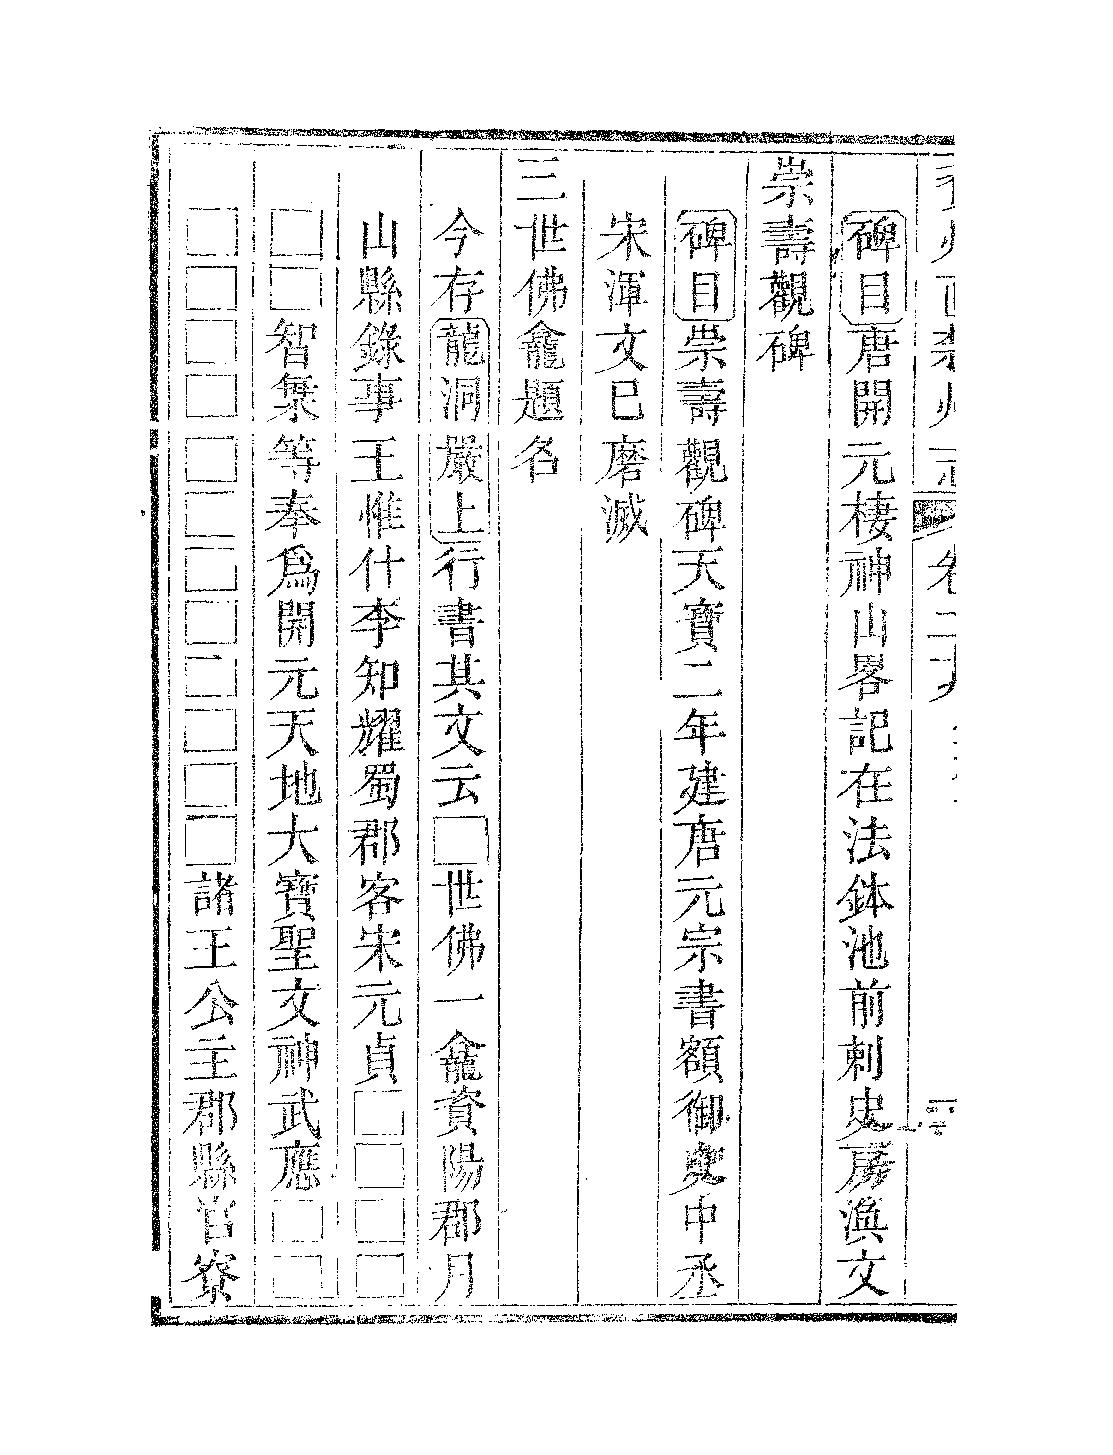 卷二十九
碑目唐開元棲神山畧記在法鉢池前刺史房渙文
崇壽觀碑
碑目崇壽觀碑天寶二年建唐元宗書額御史中丞
宋渾文已磨滅
三世佛龕題名
今存龍洞巖上行書其文云□世佛一龕資陽郡月
山縣錄事王惟什李知耀蜀郡客宋元貞□□□□
□□智鞏等奉爲開元天地大寶聖文神武應□□
□□□□□□□□□□□□諸王公主郡縣官寮